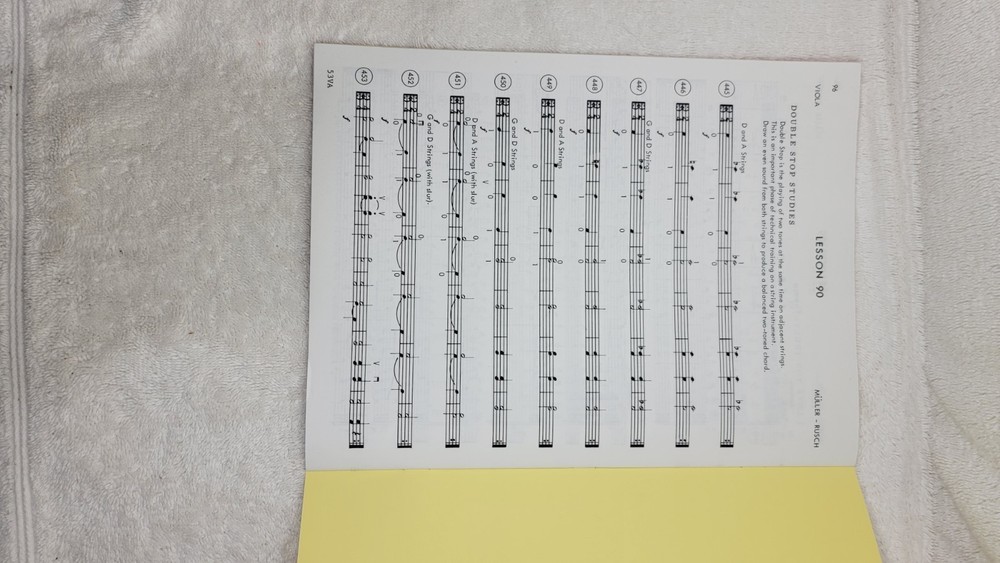 96
LESSON 90
VIOLA
MÜLLER - RUSCH
DOUBLE STOP STUDIES
Double Stop is the playing of two tones at the same time on adjacent strings.
This is an important phase of technical training on a string instrument.
Draw an even sound from both strings to produce a balanced two-toned chord.
D and A Strings
445
446
G and D Strings
447
448
D and A Strings
449
G and D Strings
450
D and A Strings (with slur)
451
G and D Strings (with slur).
452
453
53VA